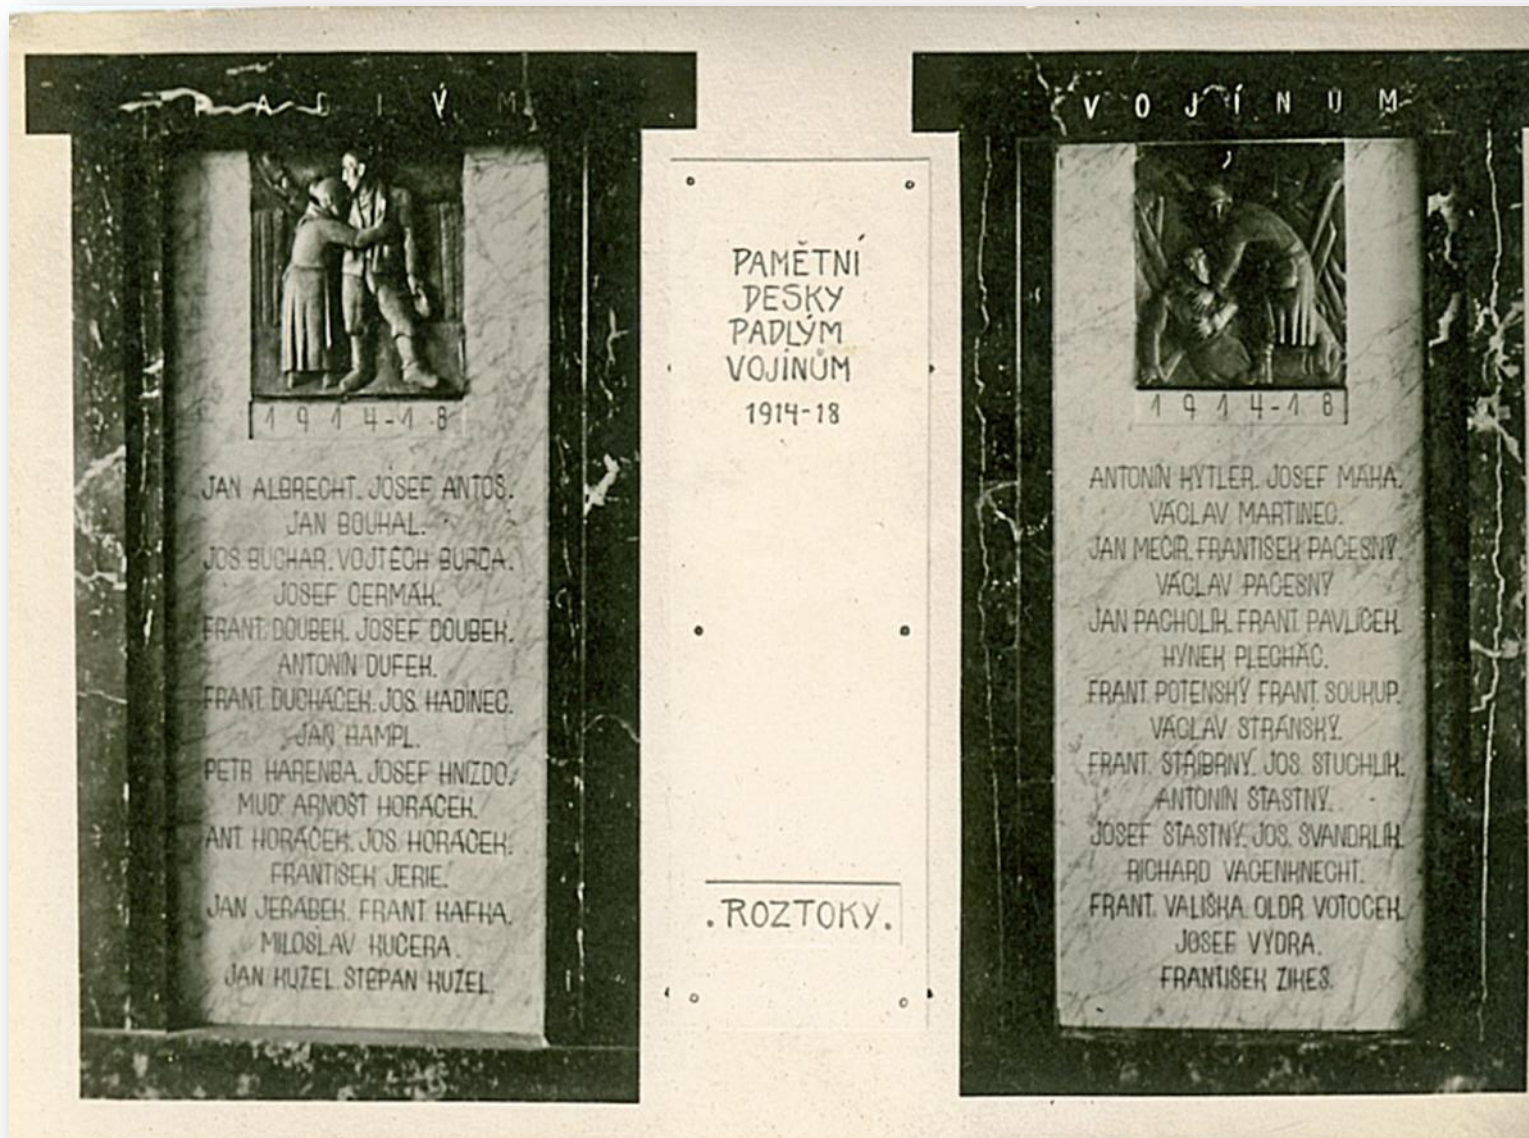 PADLÝM
1914-18
JAN ALBRECHT. JOSEF ANTOŠ.
JAN BOUHAL.
JOS. BUCHAR. VOJTĚCH BURDA.
JOSEF ČERMÁK.
FRANT. DOUBEK. JOSEF DOUBEK.
ANTONÍN DUFEK.
FRANT. DUCHÁČEK. JOS. HADINEC.
JAN HAMPL.
PETR HARENBA. JOSEF HNÍZDO.
MUDR ARNOŠT HORÁČEK.
ANT. HORÁČEK. JOS. HORÁČEK.
FRANTIŠEK JERIE.
JAN JEŘÁBEK. FRANT. KAFKA.
MILOSLAV KUČERA.
JAN KUŽEL. ŠTĚPÁN KUŽEL.
PAMĚTNÍ
DESKY
PADLÝM
VOJÍNŮM
1914-18
.ROZTOKY.
VOJÍNŮM
1914-18
ANTONÍN KYTLER. JOSEF MÁHA.
VÁCLAV MARTINEC.
JAN MEČÍŘ. FRANTIŠEK PAČESNÝ.
VÁCLAV PAČESNÝ
JAN PACHOLÍK. FRANT. PAVLÍČEK.
HYNEK PLECHÁČ.
FRANT. POTENSKÝ FRANT. SOUKUP.
VÁCLAV STRÁNSKÝ.
FRANT. STŘÍBRNÝ. JOS. STUCHLÍK.
ANTONÍN ŠŤASTNÝ.
JOSEF ŠŤASTNÝ. JOS. ŠVANDRLÍK.
RICHARD VAGENKNECHT.
FRANT. VALIŠKA. OLDR. VOTOČEK.
JOSEF VYDRA.
FRANTIŠEK ZIKEŠ.